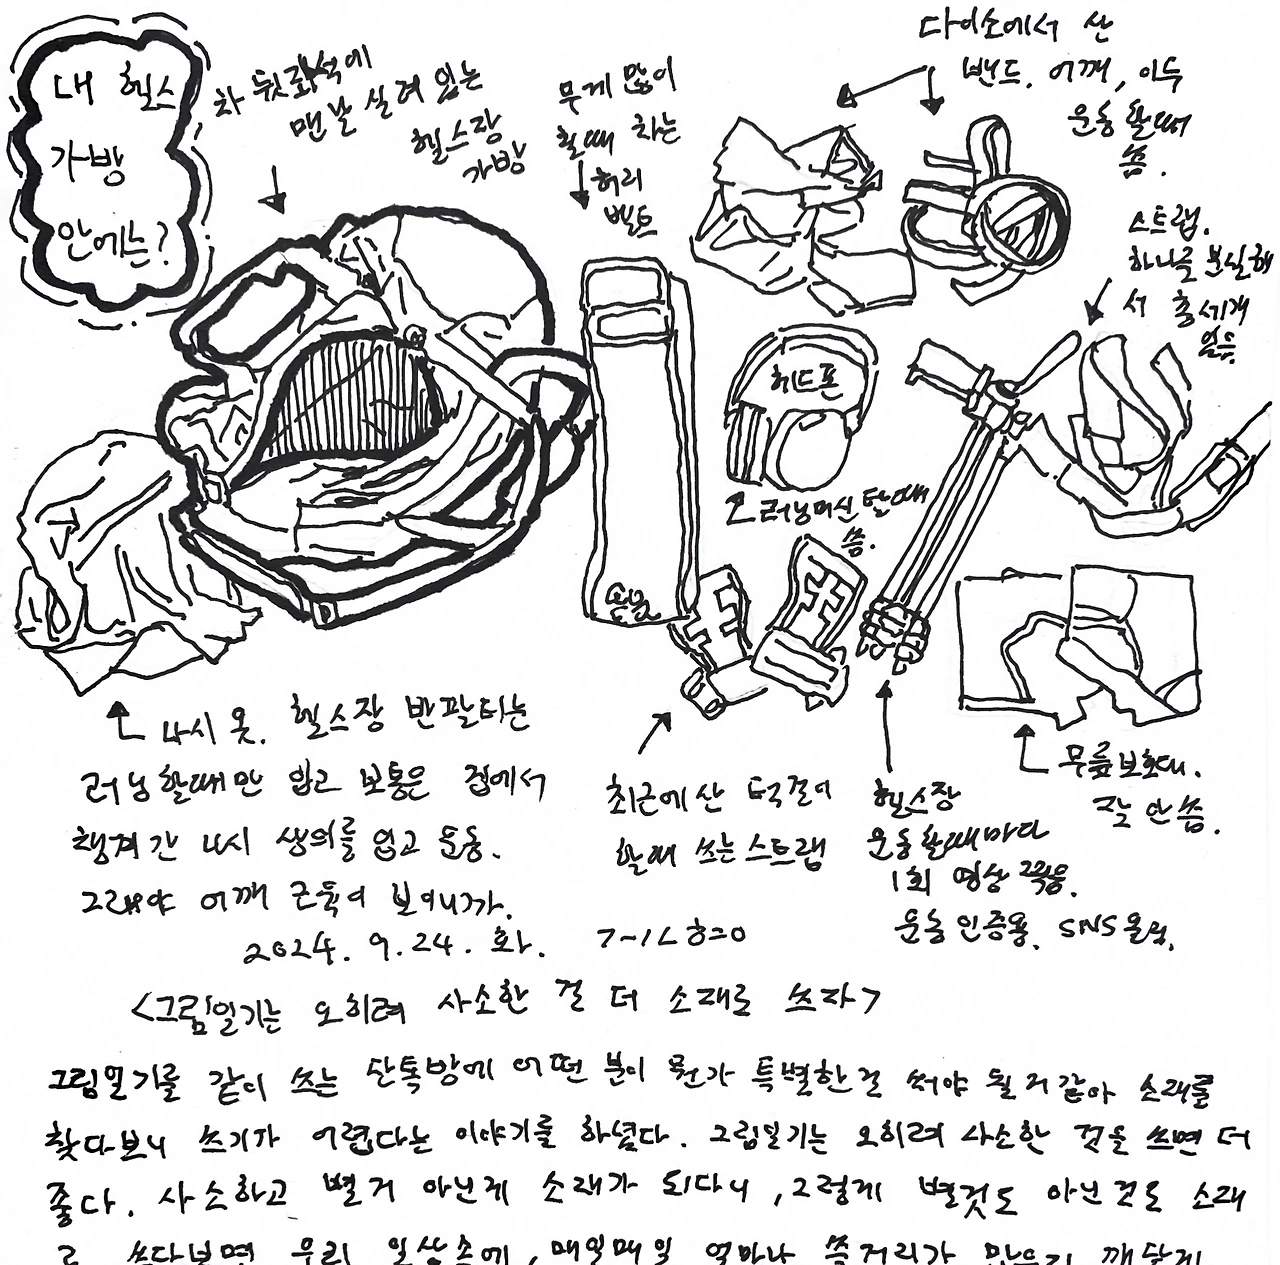 내 헬스
가방
안에는?
차 뒷좌석에
맨날 실려 있는
헬스장
가방
무게 많이
할때 차는
허리
벨트
다이소에서 산
밴드. 어깨, 이두
운동 할때
씀.
스트랩.
하나를 분실해
서 총 세개
있음.
헤드폰
러닝머신 탈때
씀.
나시 옷. 헬스장 반팔티는
러닝할때만 입고 보통은 집에서
챙겨간 나시 상의를 입고 운동.
그래야 어깨 근육이 보이니까.
최근에 산 턱걸이
할때 쓰는 스트랩
헬스장
운동할때마다
1회 영상 찍음.
운동 인증용. SNS 올림.
무릎보호대.
잘 안씀.
2024. 9. 24. 화.
<그림일기는 오히려 사소한 걸 더 소재로 쓰자>
그림일기를 같이 쓰는 단톡방에 어떤 분이 뭔가 특별한걸 써야 될거 같아 소재를
찾다보니 쓰기가 어렵다는 이야기를 하셨다. 그림일기는 오히려 사소한 것을 쓰면 더
좋다. 사소하고 별거 아닌게 소재가 되다니, 그렇게 별것도 아닌것도 소재
로 쓰다보면 우리 일상속에, 매일매일 얼마나 쓸거리가 많은지 깨닫게